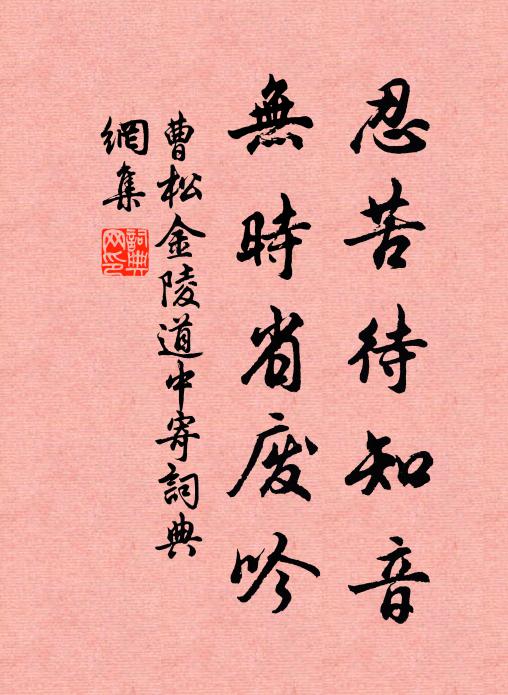 忍苦待知音
無時省废吟
曹松金陵道中寄詞典
網集
詞典網印